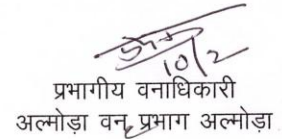 10/2
प्रभागीय वनाधिकारी
अल्मोड़ा वन प्रभाग अल्मोड़ा